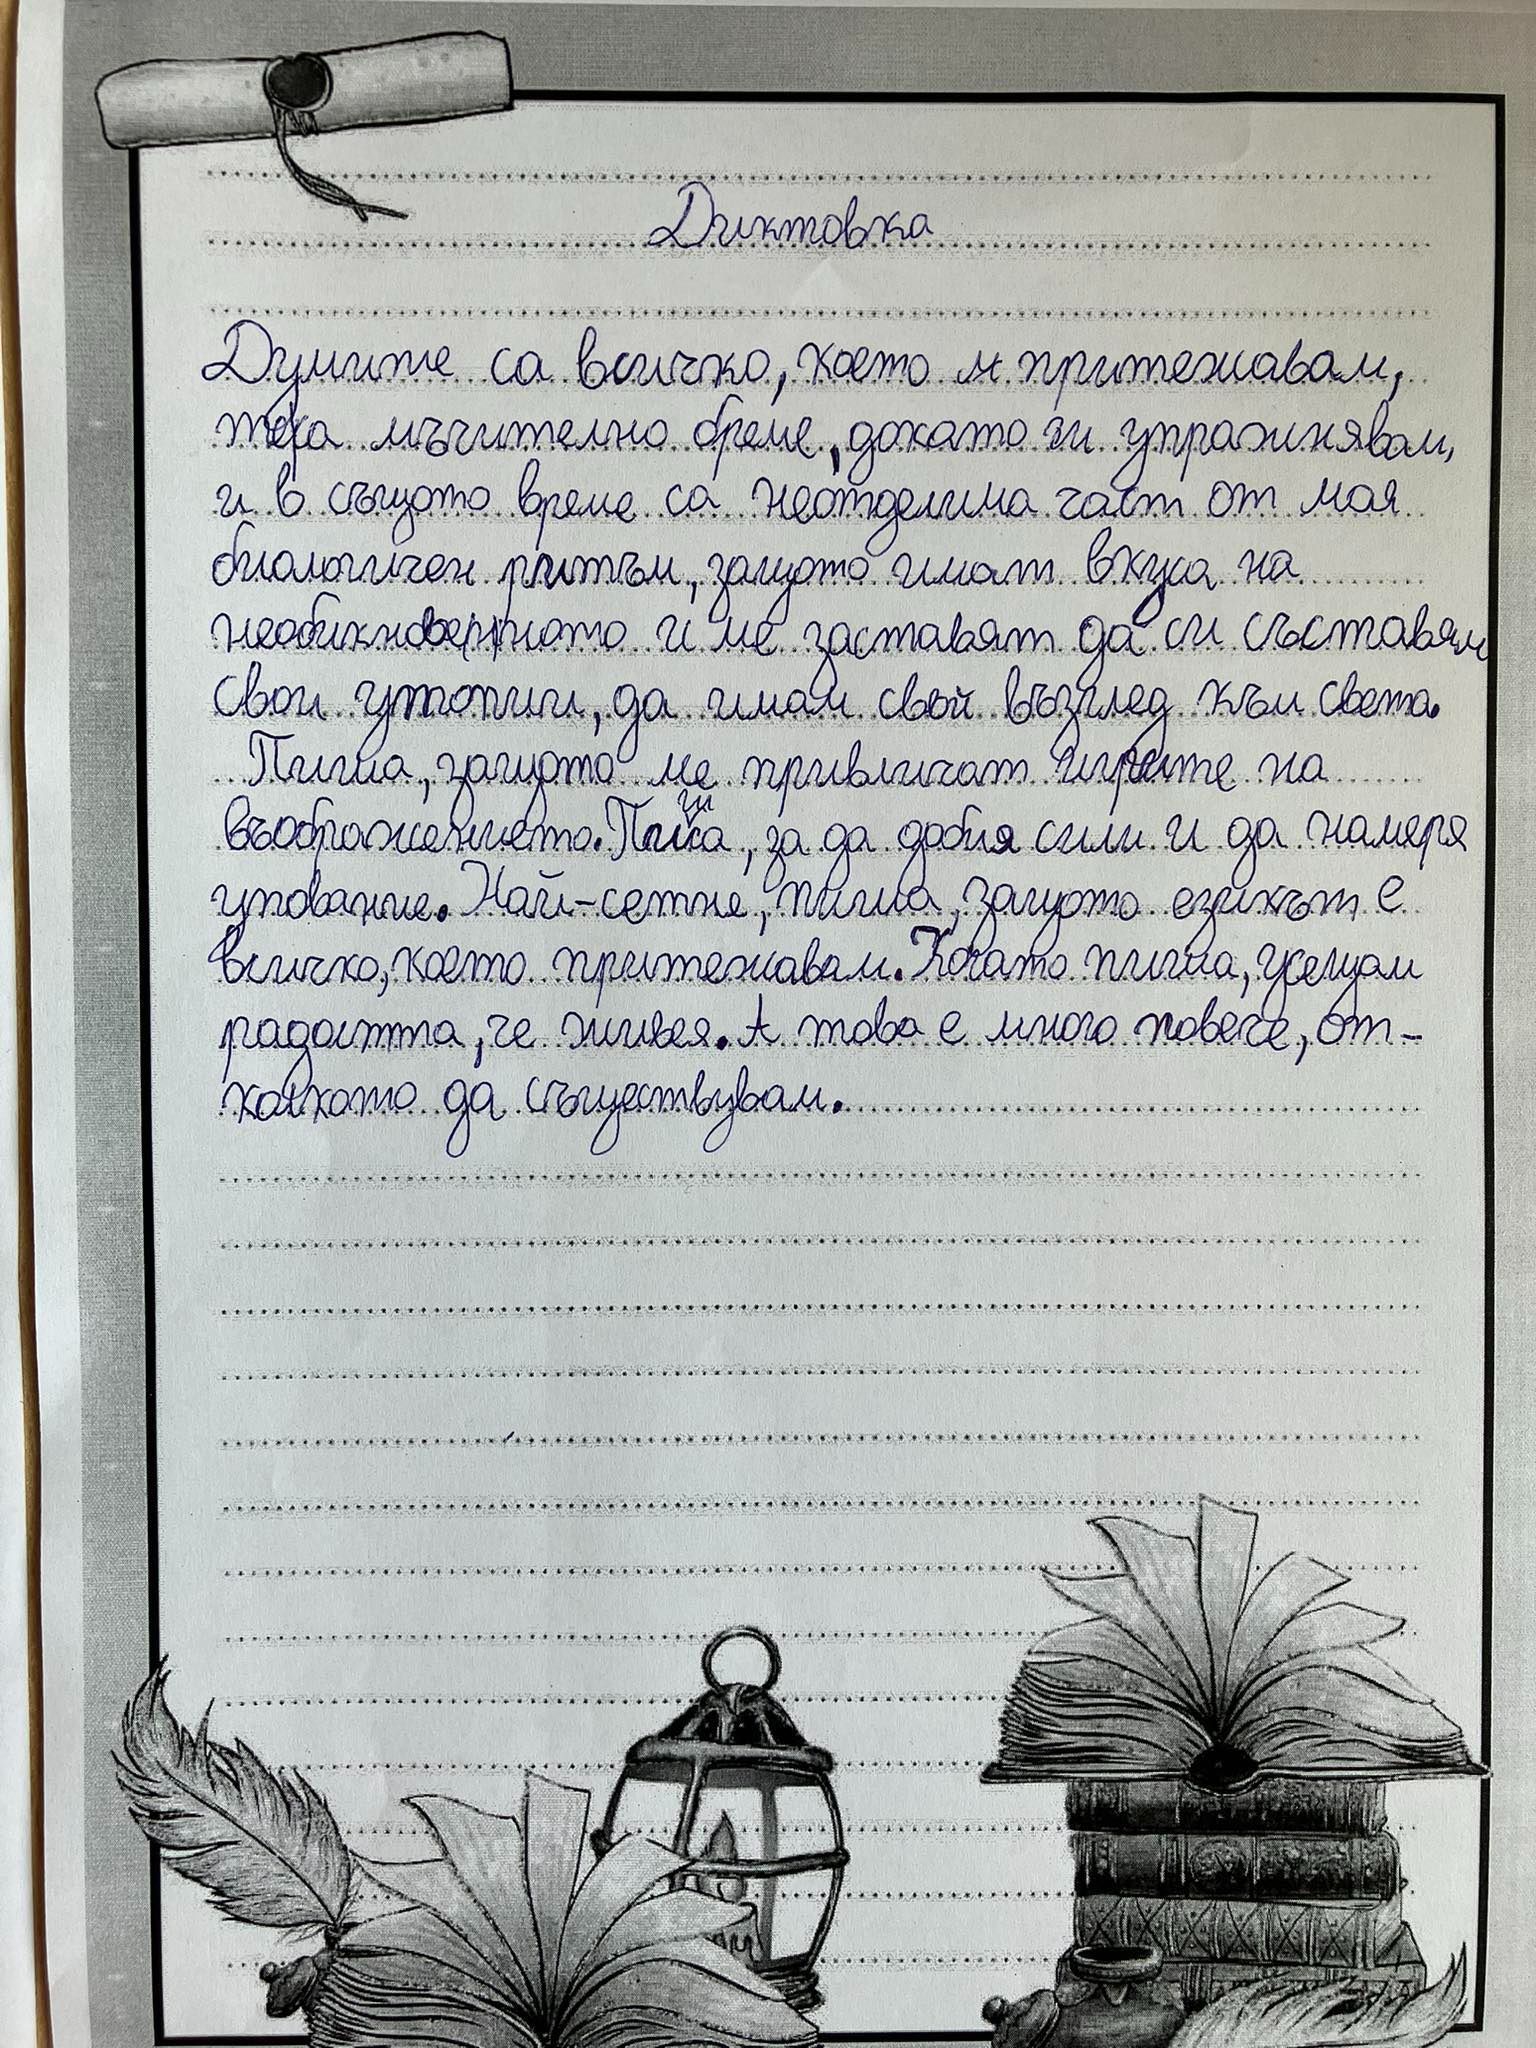 Диктовка
Думите са всичко, което притежавам,
те са мъчително бреме, докато ги упражнявам,
и в същото време са неотделима част от моя
биологичен ритъм, защото имат вкуса на
необикновенното и ме заставят да си съставям
свои утопии, да имам свой възглед към света.
Пиша, защото ме привличат игрите на
въображението. Пиша, за да добия сили и да намеря
упование. Най-сетне, пиша, защото езикът е
всичко, което притежавам. Когато пиша, усещам
радостта, че живея. А това е много повече, от-
колкото да съществувам.